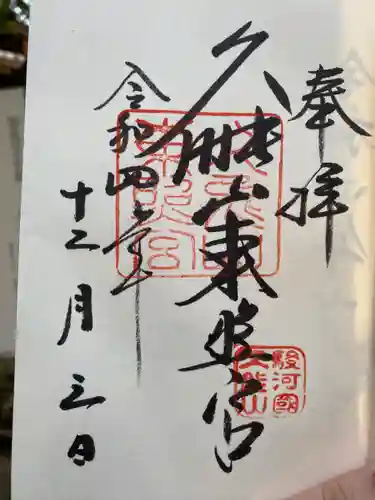 奉拝
久能山東照宮
令和四年
十二月三日
駿河國
久能山